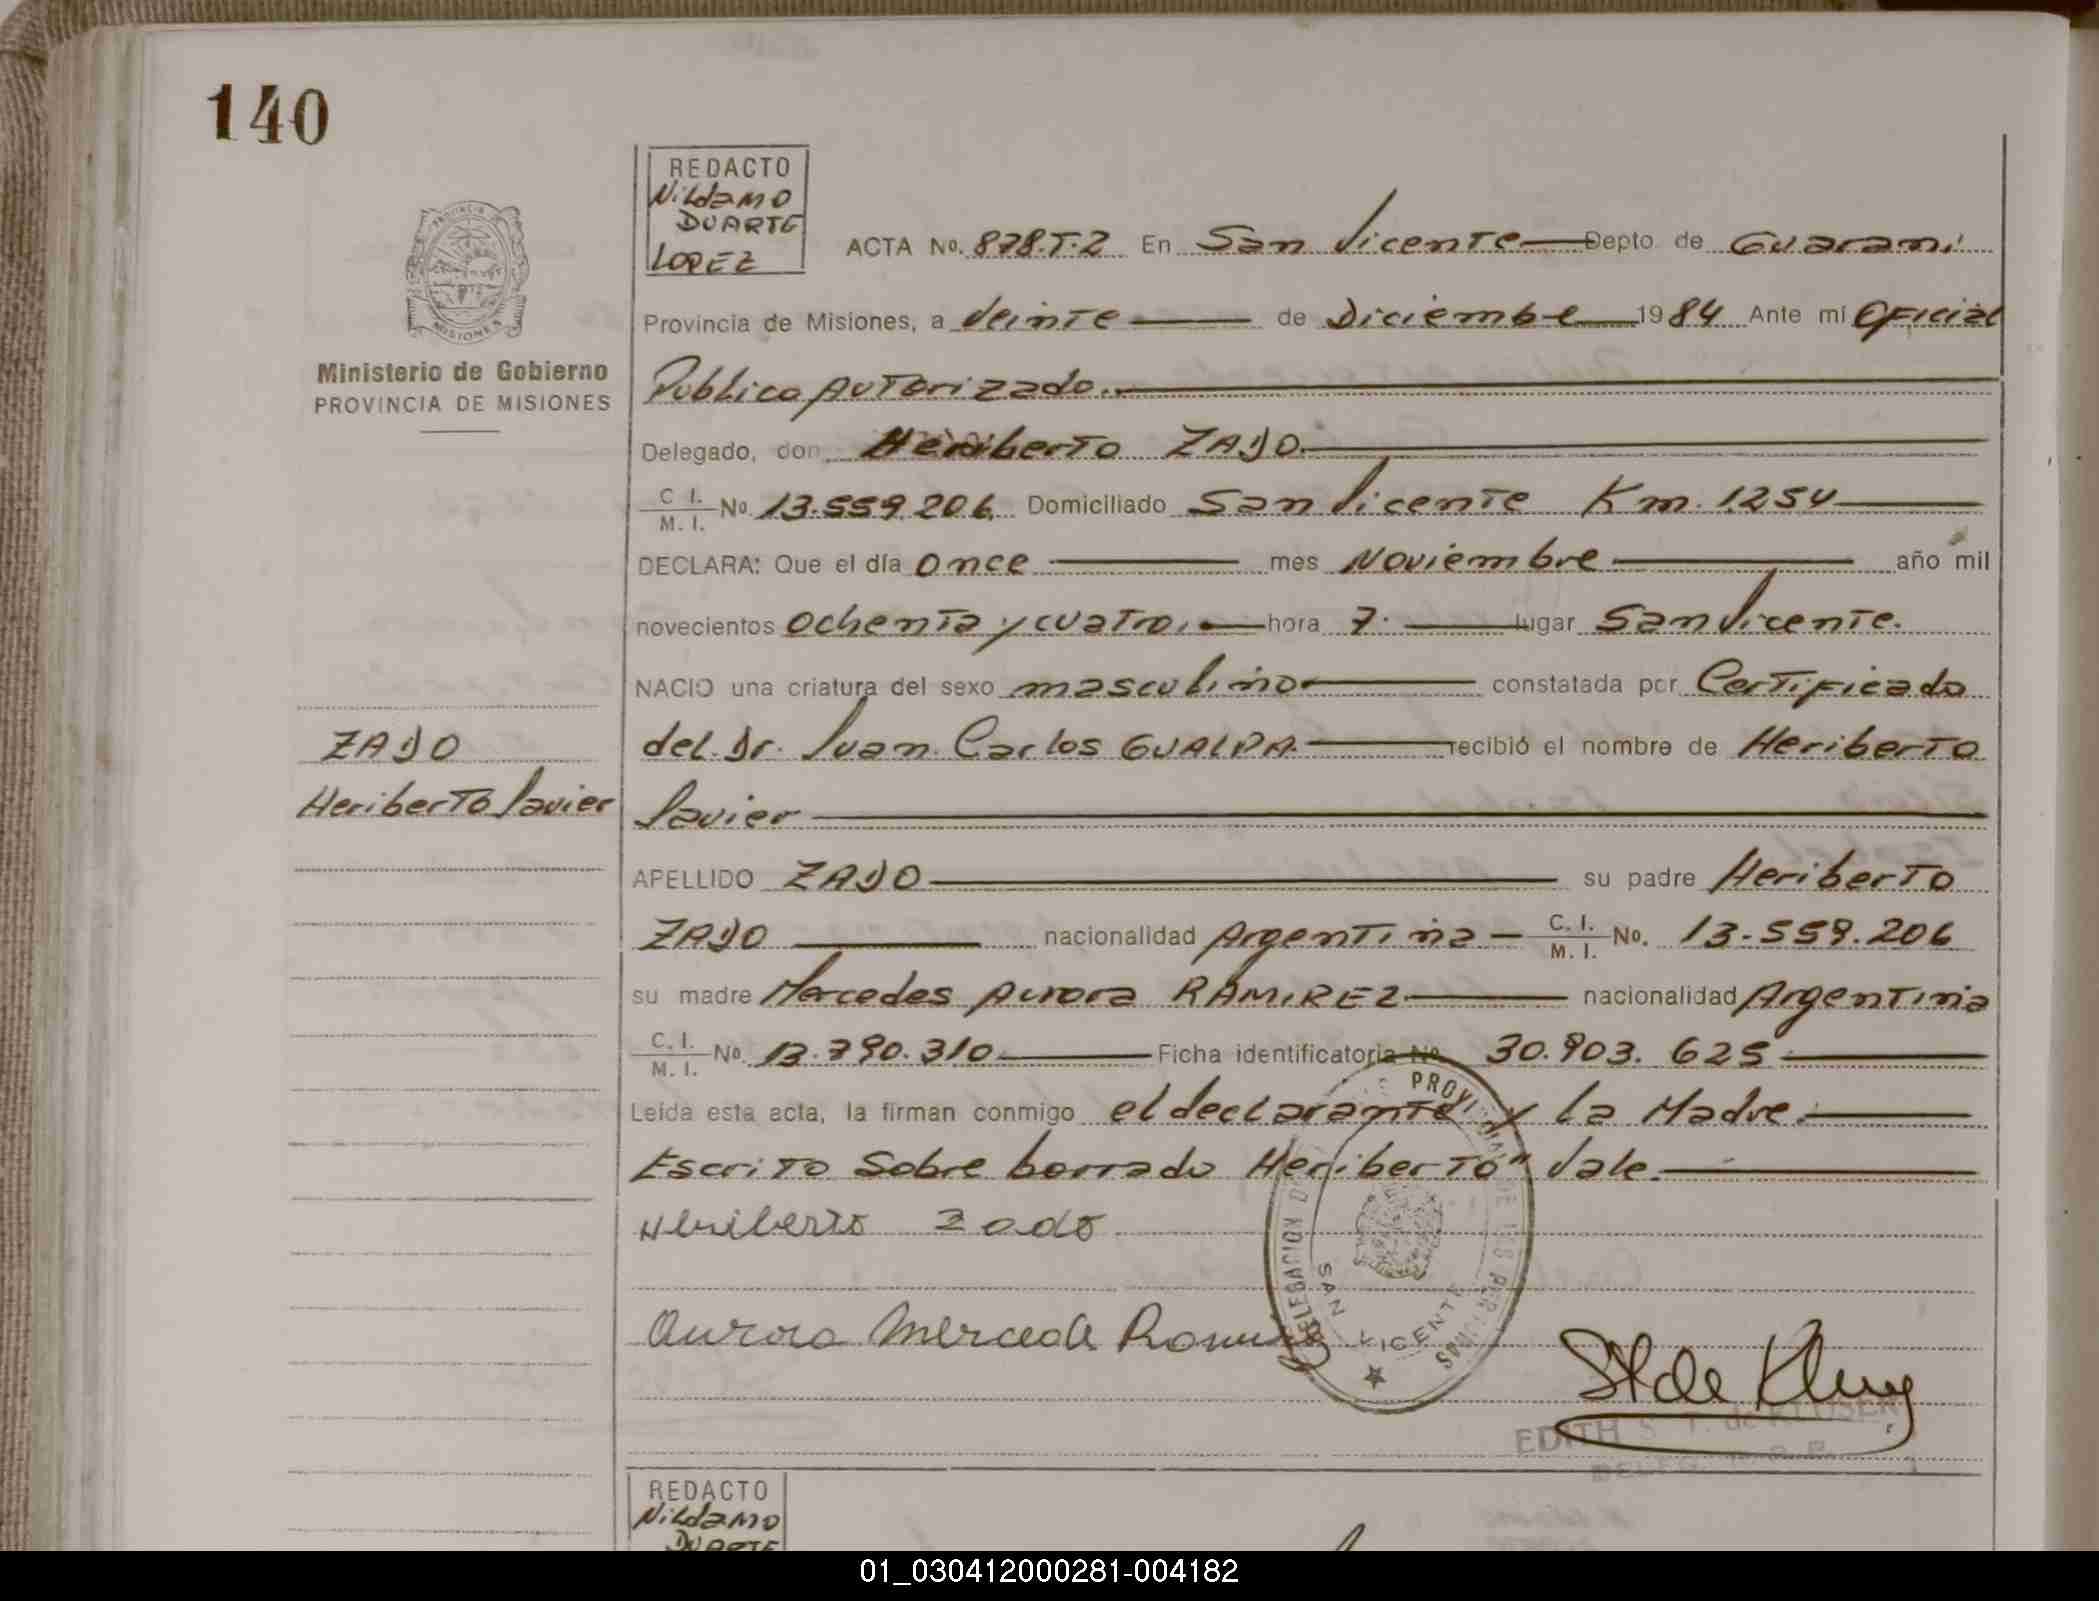 140
REDACTO
Nildamo
DUARTE
LOPEZ
ACTA No. 878.T.2 En San Vicente Depto de Guarani
PROVINCIA DE MISIONES
Ministerio de Gobierno
PROVINCIA DE MISIONES
Provincia de Misiones, a Veinte de Diciembe 1984 Ante mí Oficial
Publico Autorizado.
Delegado, don Heriberto ZADO.
C I. / M. I. No 13.559.206 Domiciliado San Vicente Km. 1254
DECLARA: Que el día once mes Noviembre año mil
novecientos ochenta y cuatro, hora 7. lugar San Vicente.
NACIO una criatura del sexo masculino constatada por Certificado
del Dr. Juan Carlos GUALPA recibió el nombre de Heriberto
Javier
ZADO
Heriberto Javier
APELLIDO ZADO su padre Heriberto
ZADO nacionalidad Argentina C. I. / M. I. No. 13.559.206
su madre Mercedes Aurora RAMIREZ nacionalidad Argentina
C. I. / M. I. No. 13.790.310 Ficha identificatoria No 30.903.625
Leída esta acta, la firman conmigo el declarante y la Madre.
Escrito Sobre borrado Heriberto" Vale.
Heriberto Zado
Aurora Mercede Ramirez
DELEGACION PROVINCIAL DE LAS PERSONAS
SAN VICENTE
EDITH S. T. de KLUSENER
REDACTO
Nildamo
DUARTE
01_030412000281-004182